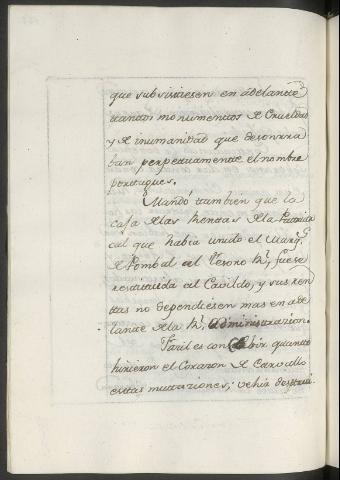 que subsistiesen en adelante
tantos monumentos de Crueldad
y de inumanidad que deshonrra
ban perpetuamente el nombre
portugues.
Mandó tambien que la
casa de las Rentas de la Patriar
cal que habia unido el Marq.s
de Pombal al Tesoro R.l fuese
restituida al Cavildo, y sus ren
tas no dependiesen mas en ade
lante de la R.l Administrazion.
Fazil es concebir quanto
hirieron el Corazon de Carvallo
estas mutaziones; vehia destrui